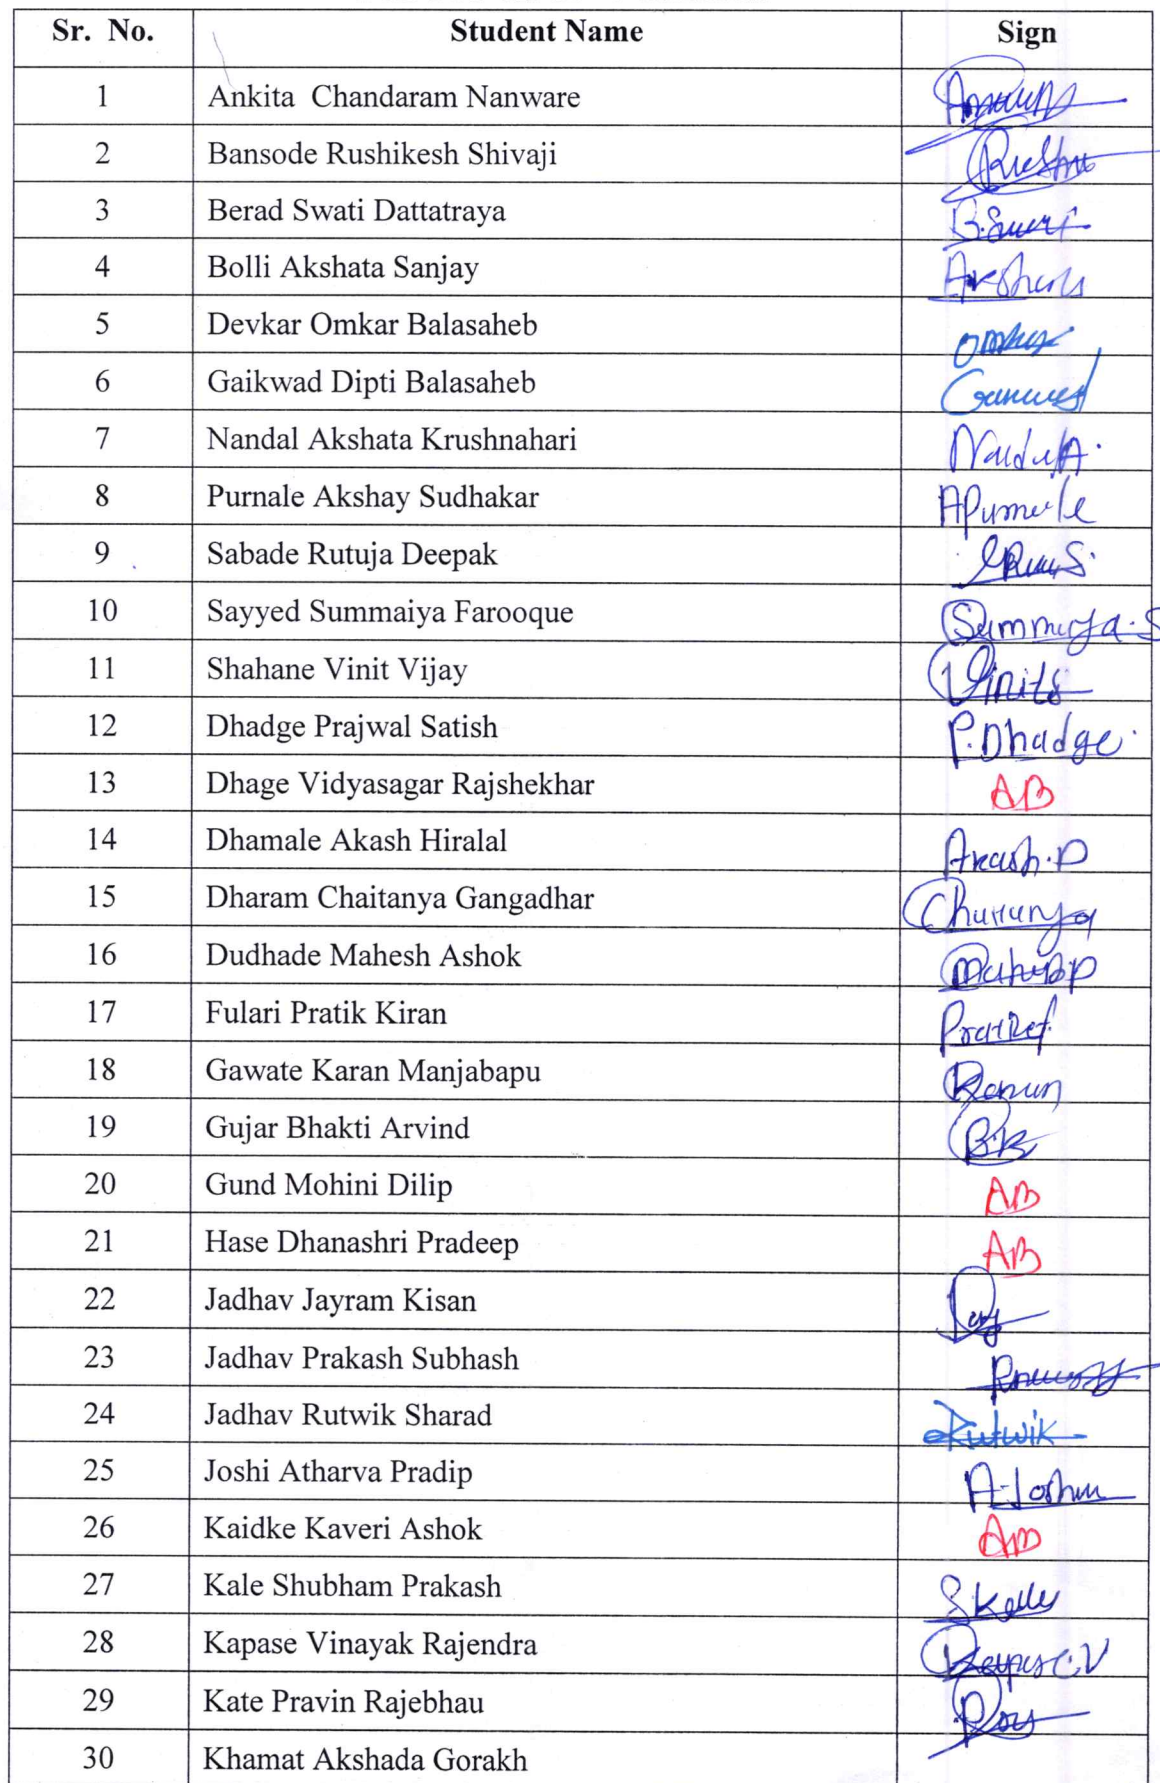 Sr. No. Student Name Sign
1 Ankita Chandaram Nanware
2 Bansode Rushikesh Shivaji
3 Berad Swati Dattatraya
4 Bolli Akshata Sanjay
5 Devkar Omkar Balasaheb
6 Gaikwad Dipti Balasaheb
7 Nandal Akshata Krushnahari
8 Purnale Akshay Sudhakar
9 Sabade Rutuja Deepak
10 Sayyed Summaiya Farooque
11 Shahane Vinit Vijay
12 Dhadge Prajwal Satish P.Dhadge.
13 Dhage Vidyasagar Rajshekhar AB
14 Dhamale Akash Hiralal
15 Dharam Chaitanya Gangadhar
16 Dudhade Mahesh Ashok
17 Fulari Pratik Kiran
18 Gawate Karan Manjabapu
19 Gujar Bhakti Arvind
20 Gund Mohini Dilip AB
21 Hase Dhanashri Pradeep AB
22 Jadhav Jayram Kisan
23 Jadhav Prakash Subhash
24 Jadhav Rutwik Sharad Rutwik
25 Joshi Atharva Pradip
26 Kaidke Kaveri Ashok AB
27 Kale Shubham Prakash
28 Kapase Vinayak Rajendra
29 Kate Pravin Rajebhau
30 Khamat Akshada Gorakh